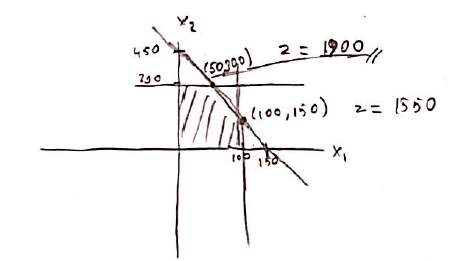 x₂
450
(50,300)
z = 1900
300
(100,150) z = 1550
100
150
x₁